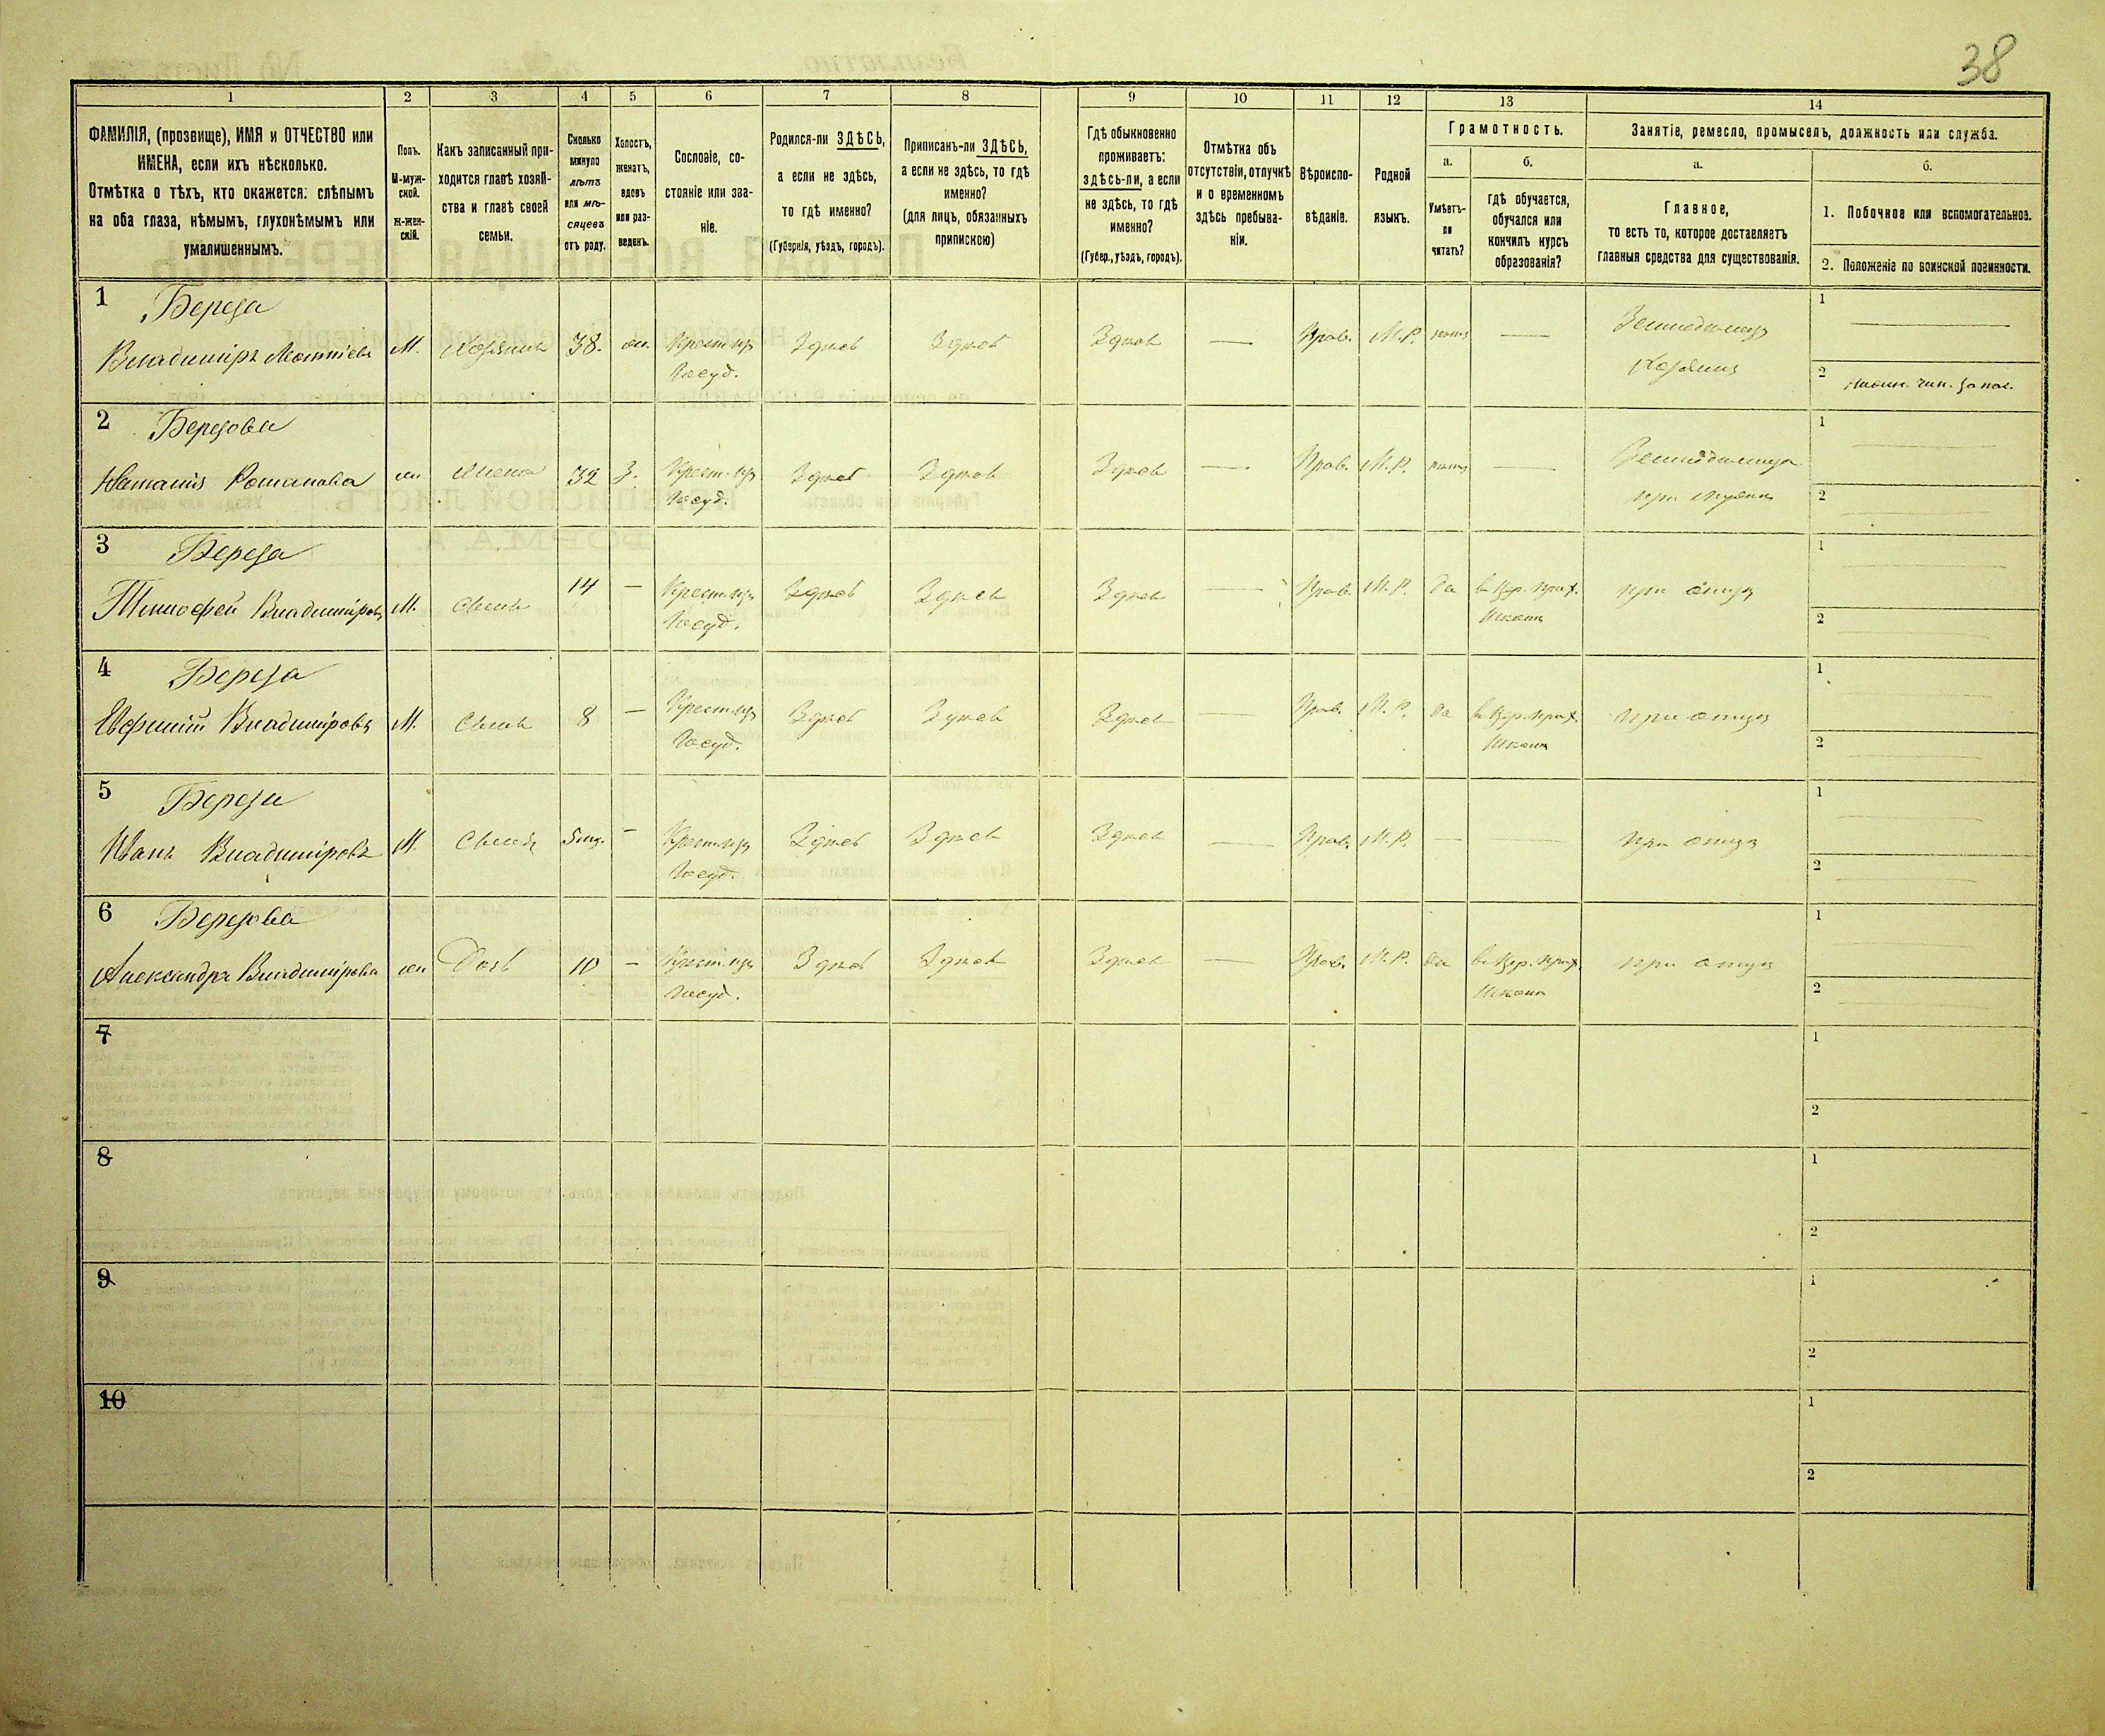 38
1 2 3 4 5 6 7 8 9 10 11 12 13 14
ФАМИЛІЯ, (прозвище), ИМЯ и ОТЧЕСТВО или
ИМЕНА, если ихъ нѣсколько.
Отмѣтка о тѣхъ, кто окажется: слѣпымъ
на оба глаза, нѣмымъ, глухонѣмымъ или
умалишеннымъ.
Полъ.
М-муж-
ской.
Ж-жен-
скій.
Какъ записанный при-
ходится главѣ хозяй-
ства и главѣ своей
семьи.
Сколько
минуло
лѣтъ
или мѣ-
сяцевъ
отъ роду.
Холостъ,
женатъ,
вдовъ
или раз-
веденъ.
Сословіе, со-
стояніе или зва-
ніе.
Родился-ли ЗДѢСЬ,
а если не здѣсь,
то гдѣ именно?
(Губернія, уѣздъ, городъ).
Приписанъ-ли ЗДѢСЬ,
а если не здѣсь, то гдѣ
именно?
(для лицъ, обязанныхъ
припискою)
Гдѣ обыкновенно
проживаетъ:
здѣсь-ли, а если
не здѣсь, то гдѣ
именно?
(Губер., уѣздъ, городъ).
Отмѣтка объ
отсутствіи, отлучкѣ
и о временномъ
здѣсь пребыва-
ніи.
Вѣроиспо-
вѣданіе.
Родной
языкъ.
Грамотность.
а.
Умѣетъ-
ли
читать?
б.
гдѣ обучается,
обучался или
кончилъ курсъ
образованія?
Занятіе, ремесло, промыселъ, должность или служба.
а.
Главное,
то есть то, которое доставляетъ
главныя средства для существованія.
б.
1. Побочное или вспомогательное.
2. Положеніе по воинской повинности.
1 Береза
Владиміръ Леонтіевъ М. Хозяинъ 38. ж. Крест. изъ Здѣсь Здѣсь Здѣсь — Прав. М.Р. нѣтъ — Земледѣлецъ
Госуд. Хозяинъ
1
2 Нижн. чин. запас.
2 Березова
Наталія Романова ж. Жена 32 З. Крест. изъ Здѣсь Здѣсь Здѣсь — Прав. М.Р. нѣтъ —
Госуд. при мужѣ
1
2
3 Береза
Тимофей Владиміровъ М. Сынъ 14 — Крест. изъ Здѣсь Здѣсь Здѣсь — Прав. М.Р. да въ Цер. прих. при отцѣ
Госуд. Школѣ
1
2
4 Береза
Евфимій Владиміровъ М. Сынъ 8 — Крест. изъ Здѣсь Здѣсь Здѣсь — Прав. М.Р. да въ Цер. прих. при отцѣ
Госуд. Школѣ
1
2
5 Береза
Иванъ Владиміровъ М. Сынъ 5 — Крест. изъ Здѣсь Здѣсь Здѣсь — Прав. М.Р. — — при отцѣ
Госуд.
1
2
6 Березова
Александра Владимірова ж. Дочь 10 — Крест. изъ Здѣсь Здѣсь Здѣсь — Прав. М.Р. да въ Цер. прих. при отцѣ
Госуд. Школѣ
1
2
7
1
2
8
1
2
9
1
2
10
1
2